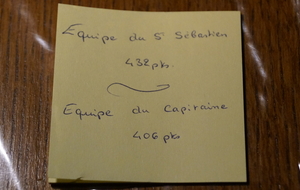 Equipe du 5 Sébastien
432 pts.
Equipe du Capitaine
406 pts